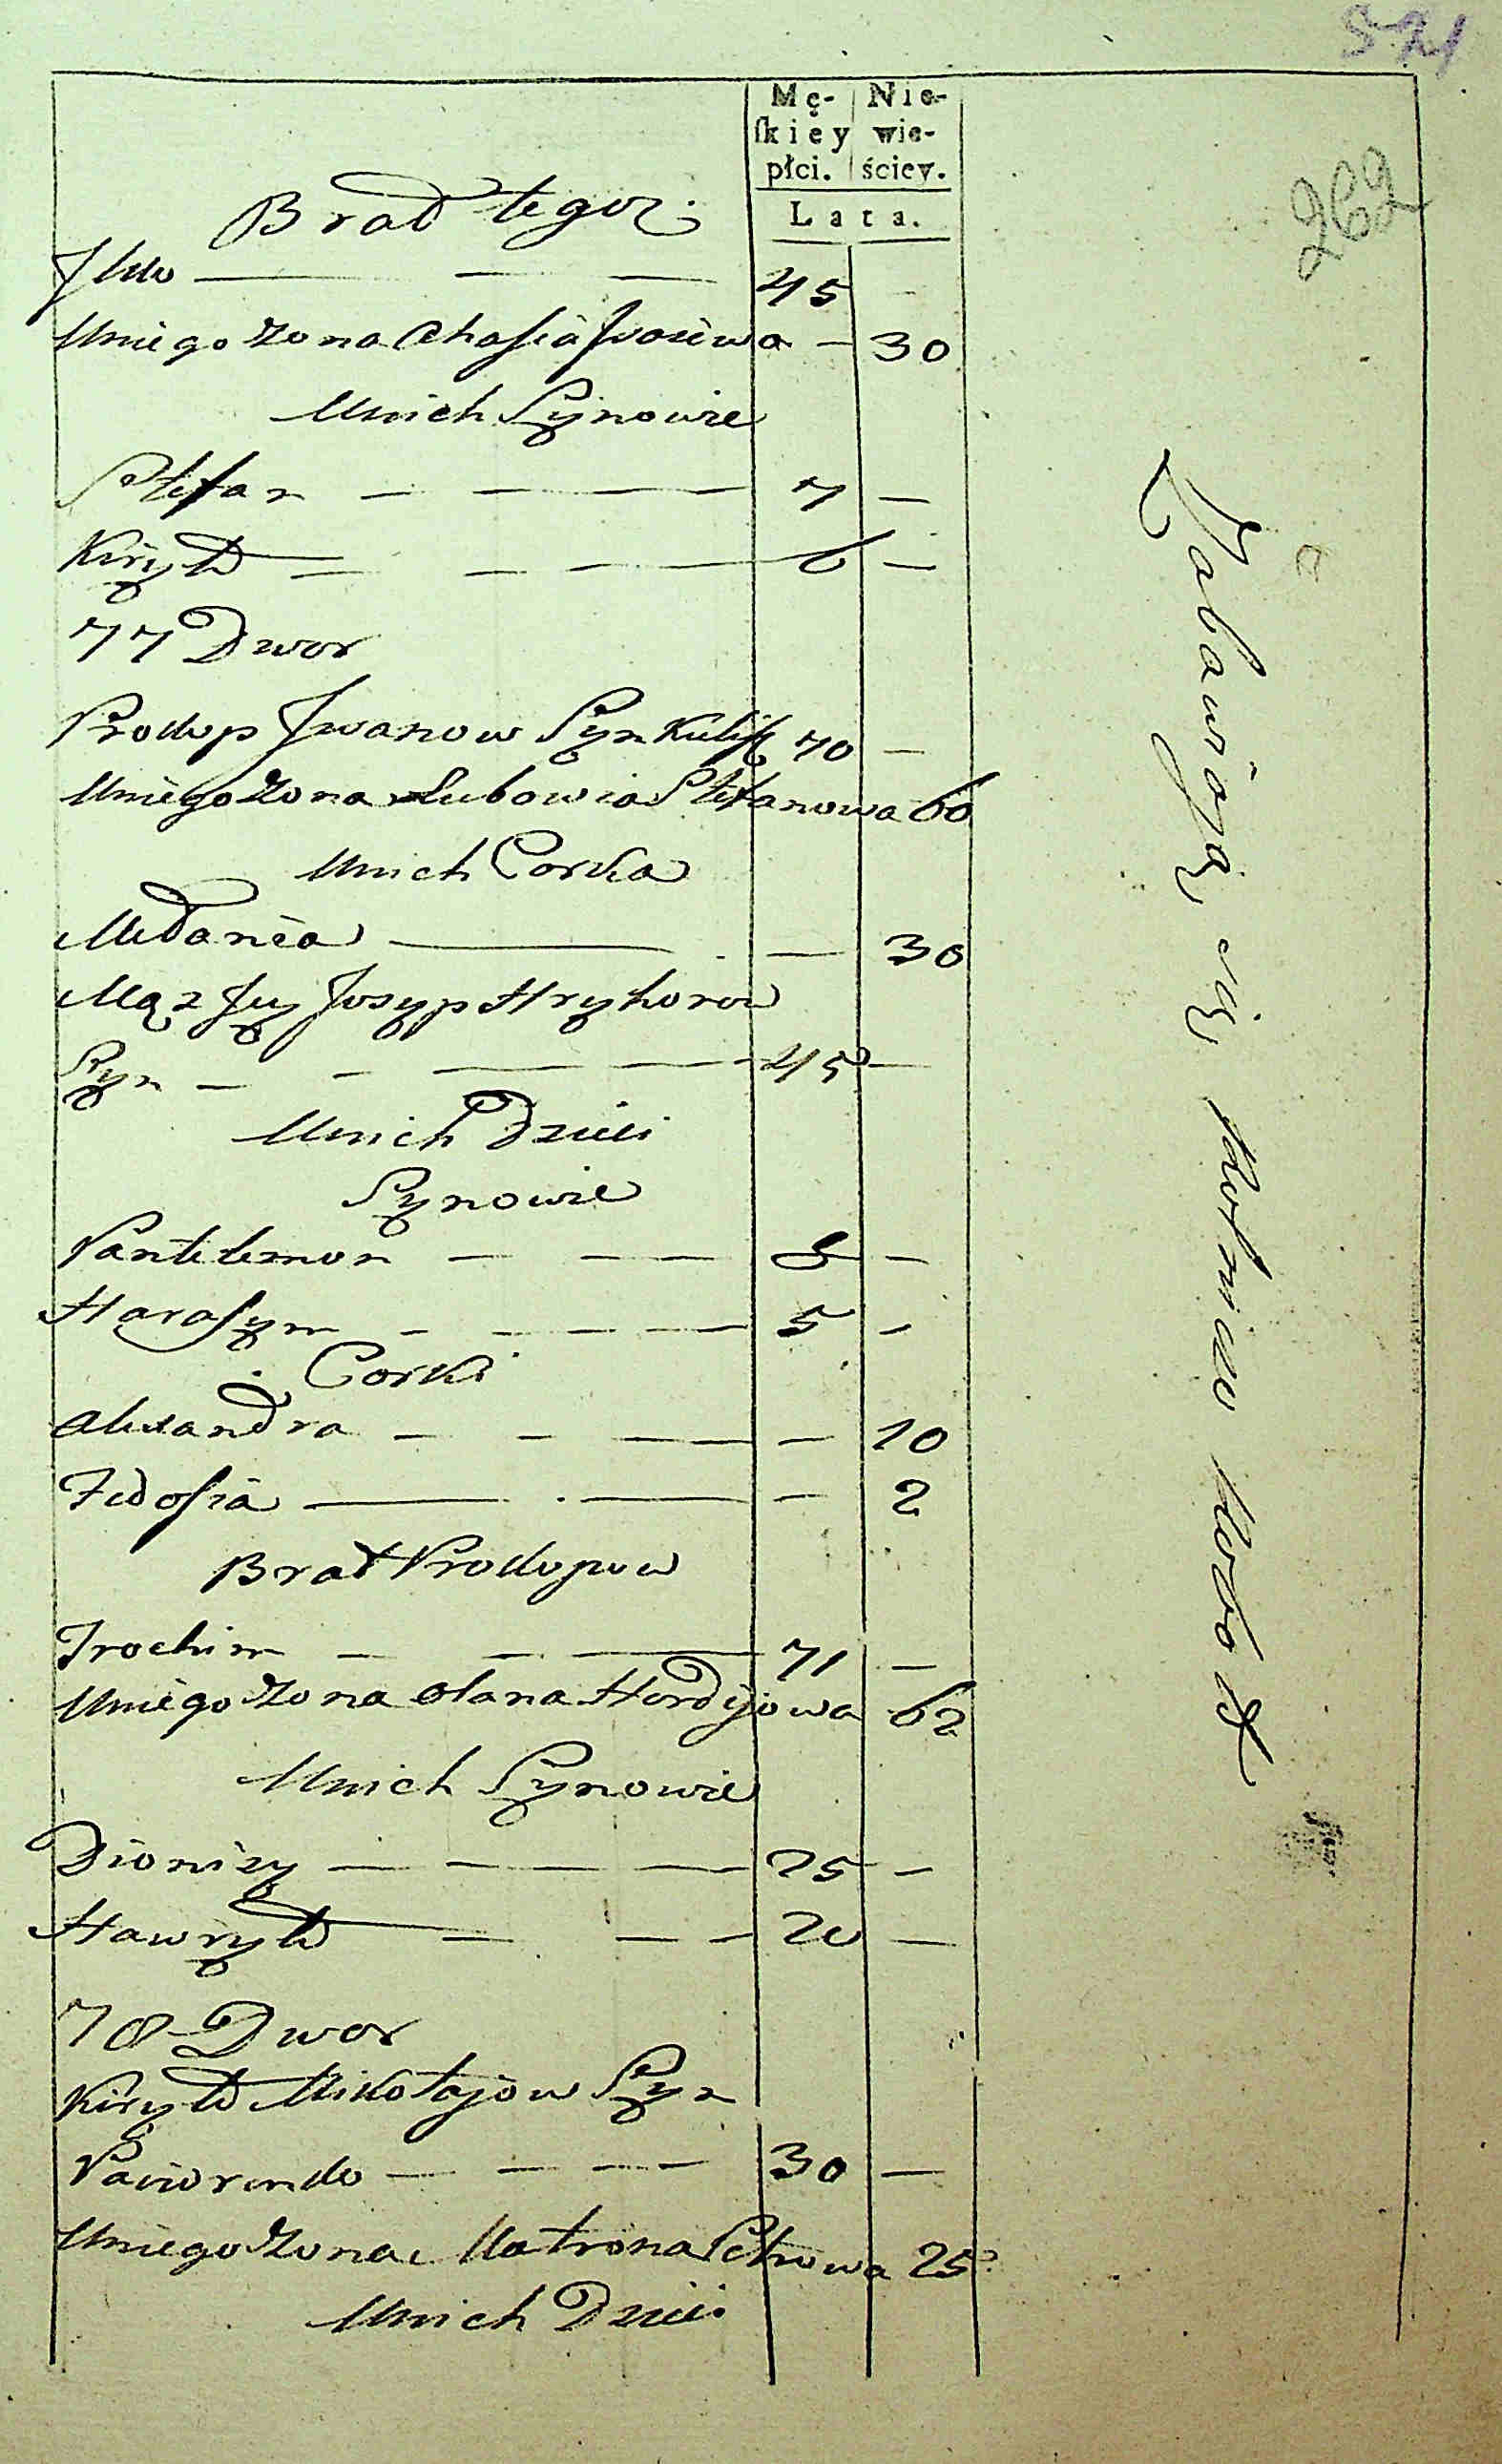 521
262
Mę-
skiey
płci.
Nie-
wie-
ściey.
Lata.
Brat tegoz
Jlko — — — 45 —
Uniego Zona Chasia Jwasiewa — 30
Unich Synowie
Stefan — — — 7 —
Kiryło — — — 6 —
77 Dwor
Prokop Jwanow Syn Kulisz 70 —
Uniego Zona Lubowia Stefanowa 60
Unich Corka
Mełania — — 30
Mąz Jey Josyp Hryhorow
Syn — — — — 45 —
Unich Dzieci
Synowie
Pantelemon — — — 8 —
Harasym — — — — 5 —
Corki
Alexandra — — — — 10
Fedosia — — — 2
Brat Prokopow
Trochim — — — 71 —
Uniego Zona Olana Hordijowa 62
Unich Synowie
Dionizy — — — — 25 —
Hawryło — — — 20 —
78 Dwor
Kiryło Mikołajow Syn
— — — 30 —
Uniego Zona Matrona Petrowa 25
Unich Dzieci
Zabawiają się Rolnictwem